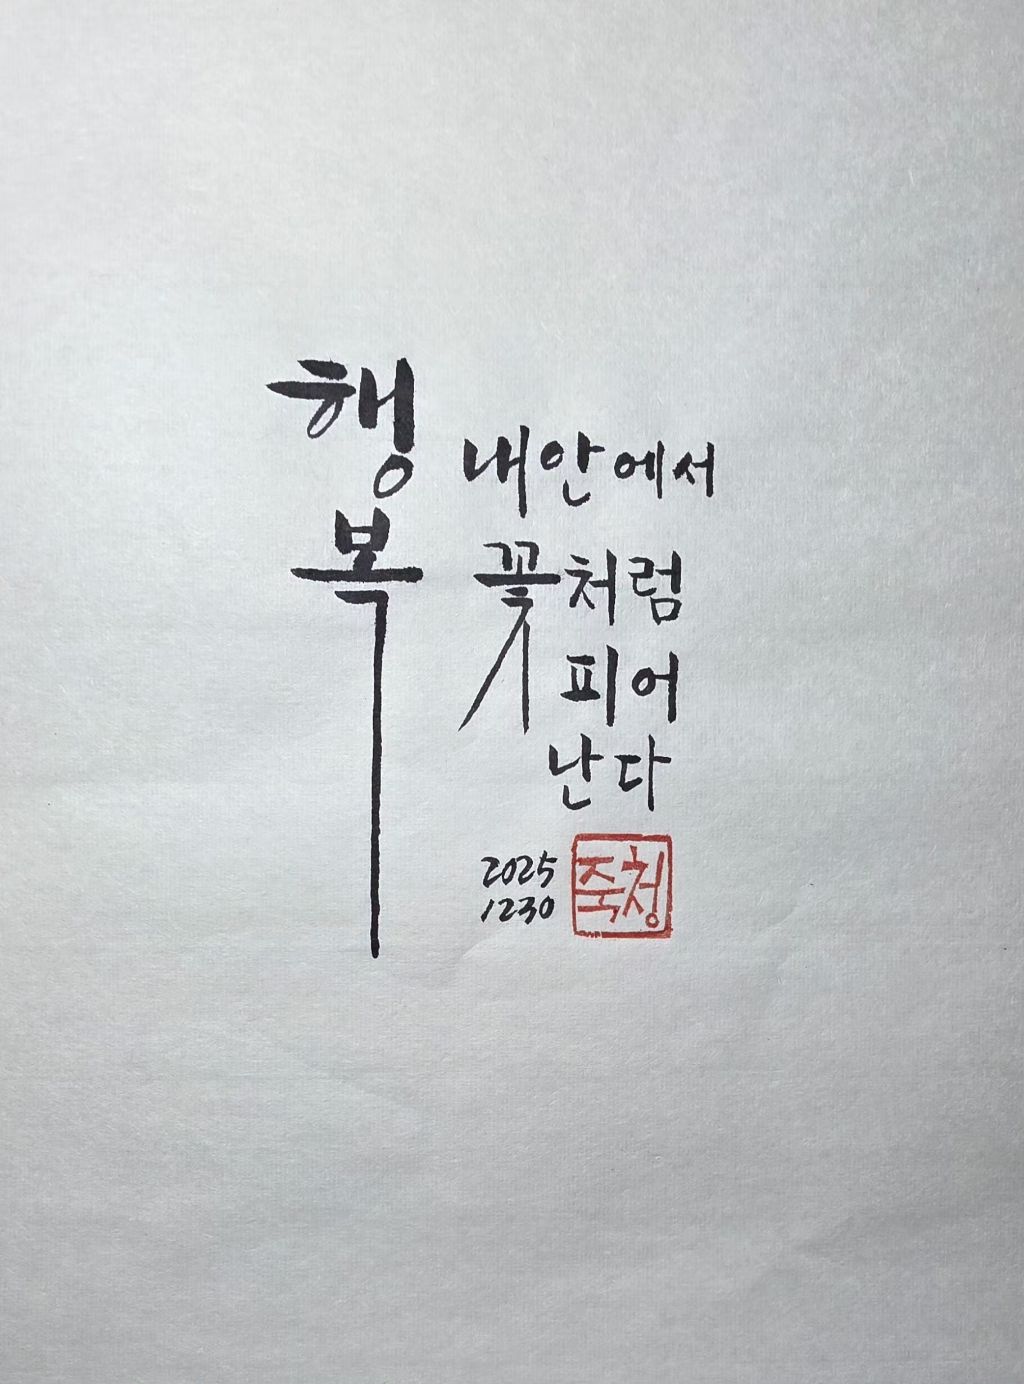 행복
내안에서
꽃처럼
피어
난다
2025
1230
죽청